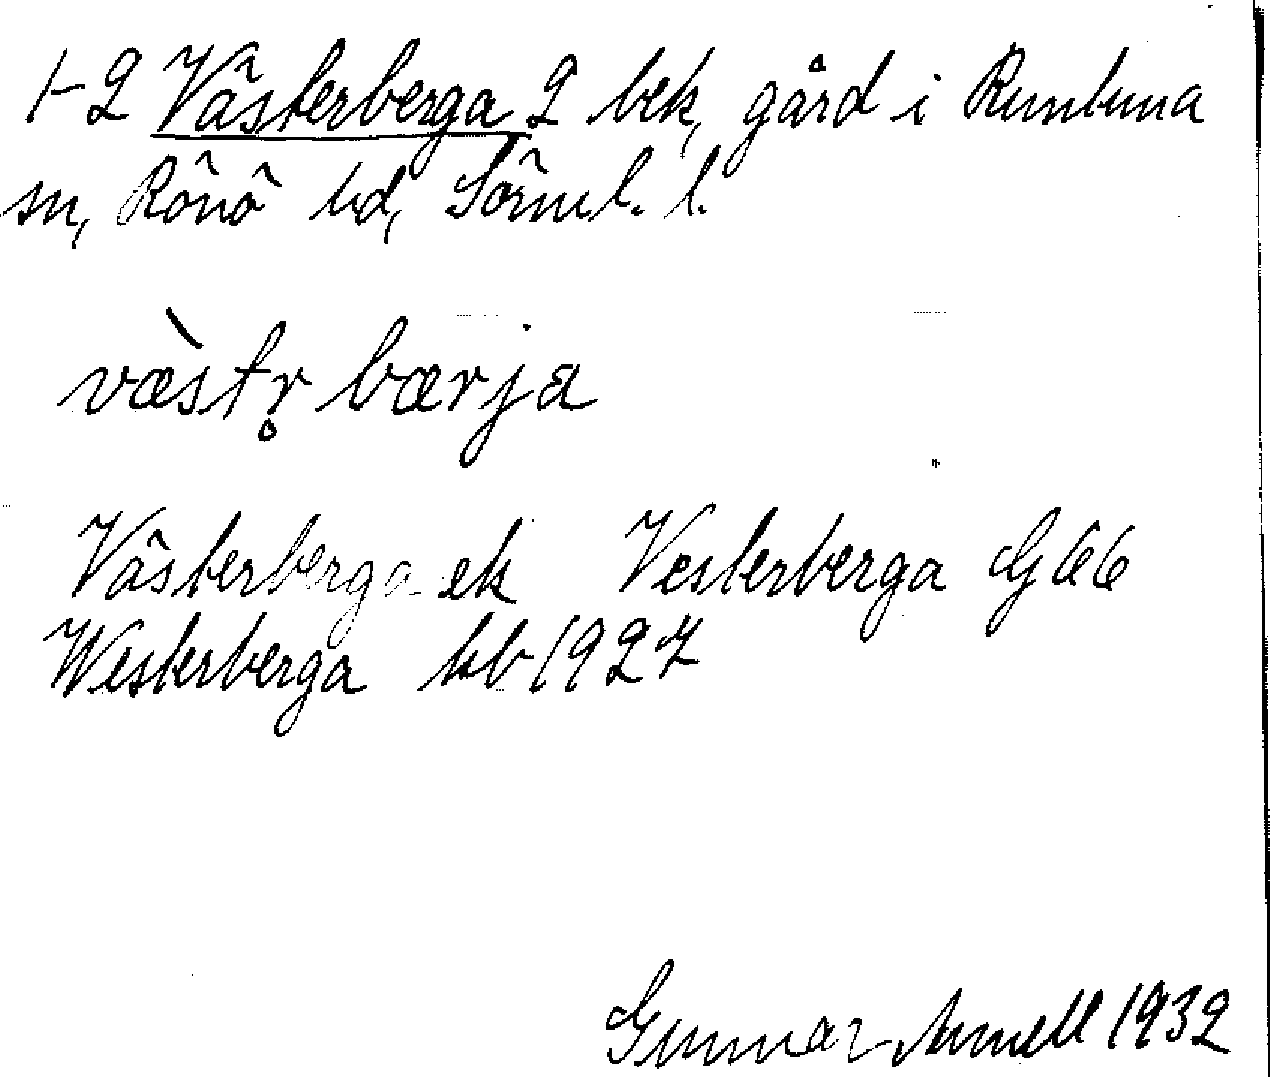 1-2 Västerberga 2 bek, gård i Runtuna
sn, Rönö hd, Sörml. l.
væ̀str̥ bærja
Västerberga ek Vesterberga GAb6
Westerberga kb 1927
Gunnar 1932